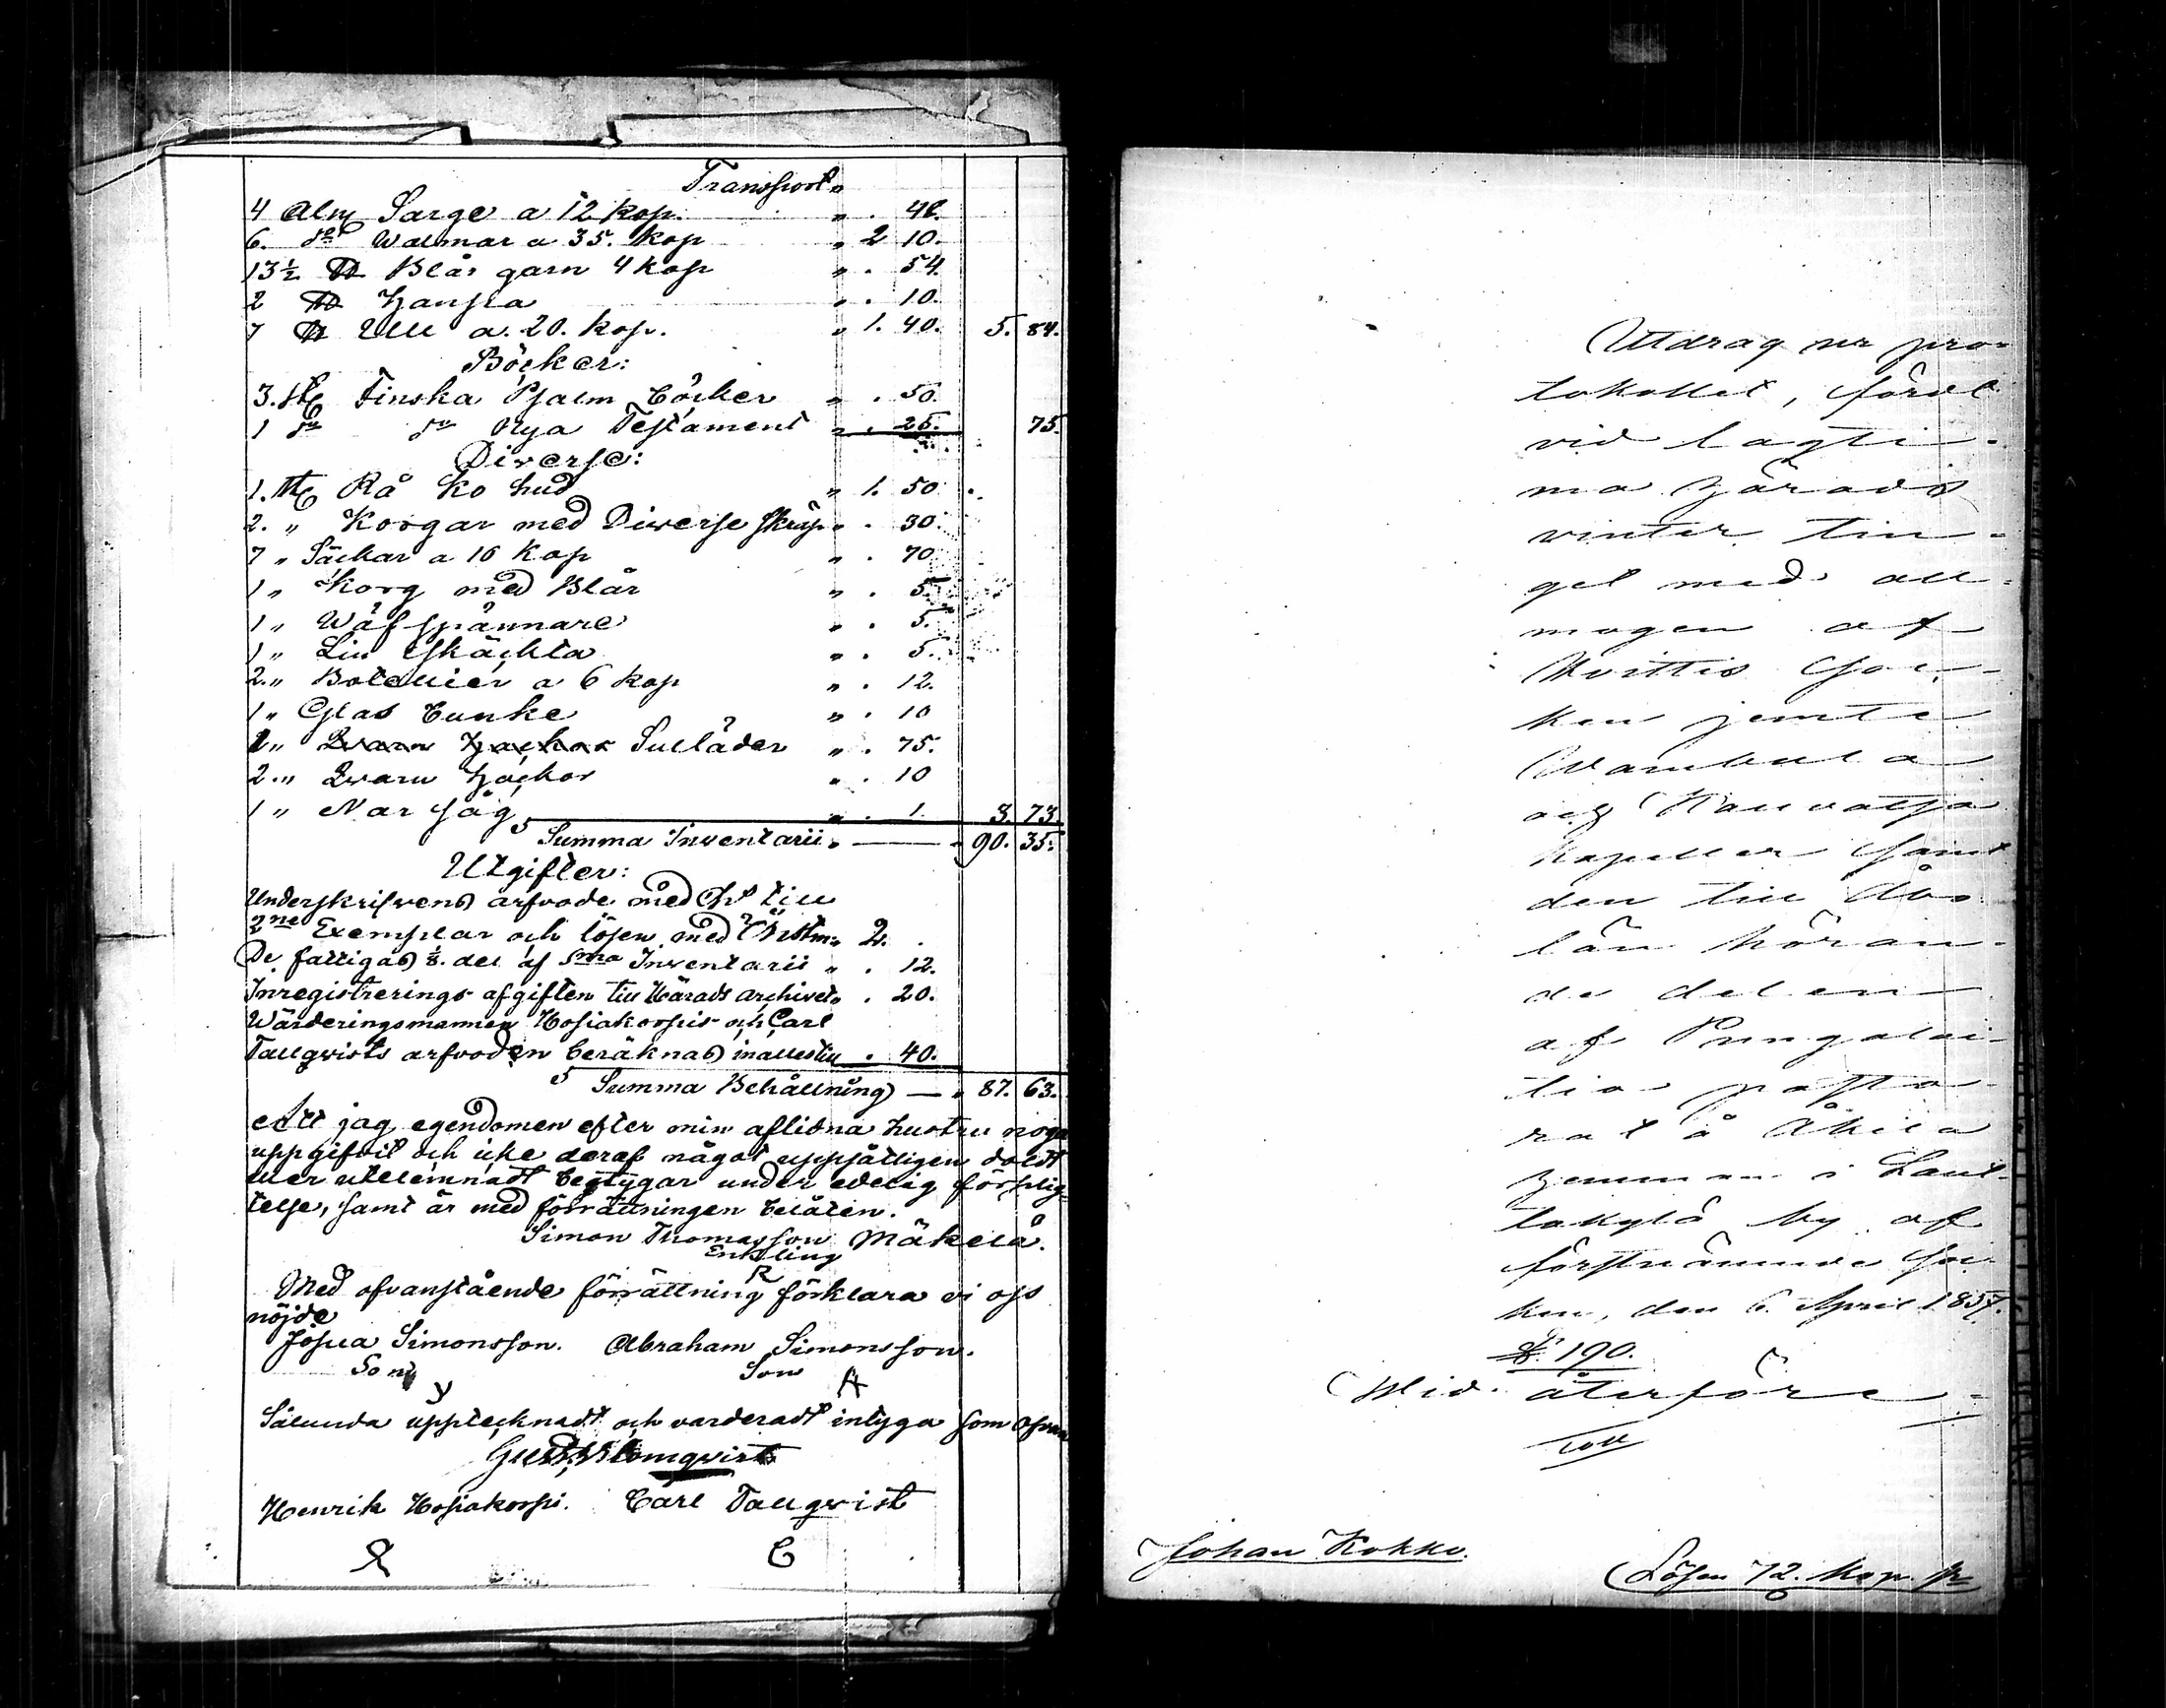 Transport "
4 Aln Sarge a 12 kop. " . 48.
6. do Walmar a 35. kop " 2 10.
13½ ℔ Blår garn 4 kop " . 54.
2 ℔ Hampa " . 10.
7 ℔ Ull a. 20. kop. " 1. 40. 5. 84.
Böcker:
3. st Finska Psalm böcker " . 50.
1 do do Nya Testament " . 25. 75.
Diverse:
1. st Rå ko hud " 1. 50.
2. " Korgar med Diverse skräp " . 30.
7 " Säckar a 10 kop " . 70
1 " Korg med Blår " . 5.
1 " Wäf spännare " . 5.
1 " Lin skäckta " . 5.
2. " Botellier a 6 kop " . 12.
1 " Glas bunke " . 10
1 " Qvarn Hackor Sulläder " . 75.
2. " Qvarn Hackor " . 10
1 " Nafsåg " . 1. 3. 73.
Summa Inventarii " — " 90. 35.
Utgifter:
Underskrifvens arfvode med Ch till
2ne Exemplar och lösen med " 2. .
De fattigas ⅛. del af Sma Inventarii " . 12.
Inregistrerings afgiften till Härads archivet " . 20.
Wärderingsmannen Hosiakoskis och Carl
Tallqvists arfvoden beräknas inallestill . 40.
Summa Behållning — " 87. 63.
Att jag egendomen efter min aflidna hustru noga
uppgifvit och icke deraf något uppsåtligen doldt
eller utelemnadt betygar under edelig förplig-
telse, samt är med förrättningen belåten.
Simon Thomasson Mäkelä.
Enkling
Med ofvanstående förrättning förklara vi oss
nöjde
Josua Simonsson. Abraham Simonsson.
Son Son
Sålunda upptecknadt och värderadt intyga som ofvan
Gust. Blomqvist
Henrik Hosiakoski. Carl Tallqvist
C
Utdrag ur pro-
tokollet, fördt
vid lagti-
ma Härads
vinter tin-
get med all-
mogen af
Hvittis Soc-
ken jemte
Wambula
och Kauvatsa
kapeller samt
den till Åbo
län höran-
de delen
af Pungalai-
tio pasto-
rat å Äkilä
hemman i Laut-
takylä by af
förstnämnde soc-
ken, den 6. April 1857.
§. 190.
Wid återföre-
Johan Kokko.
Lösen 72. kop. Sr